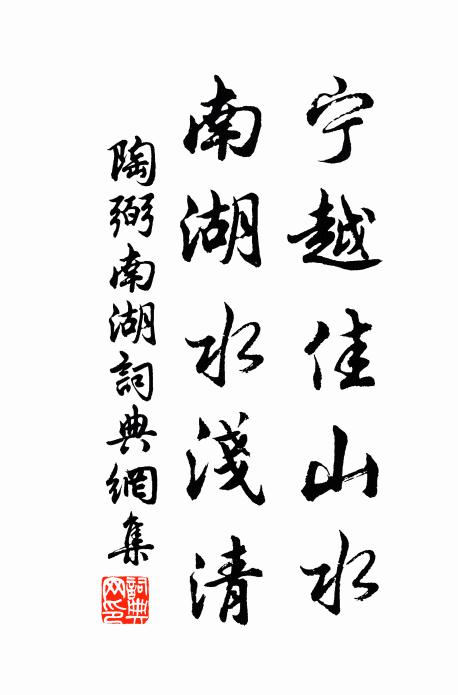 宁越佳山水
南湖水淺清
陶弼南湖詞典網集
詞典网印